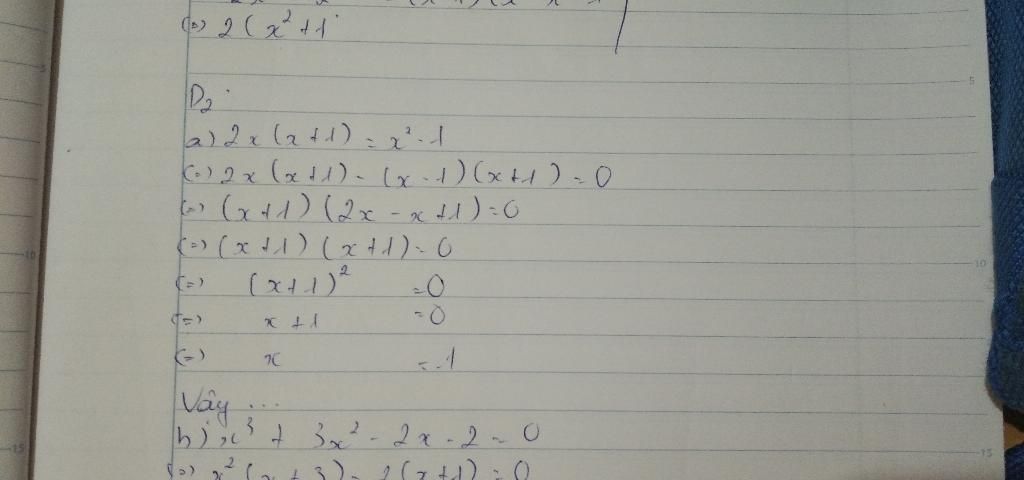 (=) 2(x²+1
D₂
a) 2x(x+1) = x²-1
(=) 2x(x+1) - (x-1)(x+1) = 0
(=) (x+1)(2x-x+1)=0
(=) (x+1)(x+1)=0
(=) (x+1)² =0
(=) x+1 =0
(=) x =-1
Vậy ...
b) x³ + 3x² - 2x - 2 = 0
(=) x²(x+3) - 2(x+1) = 0